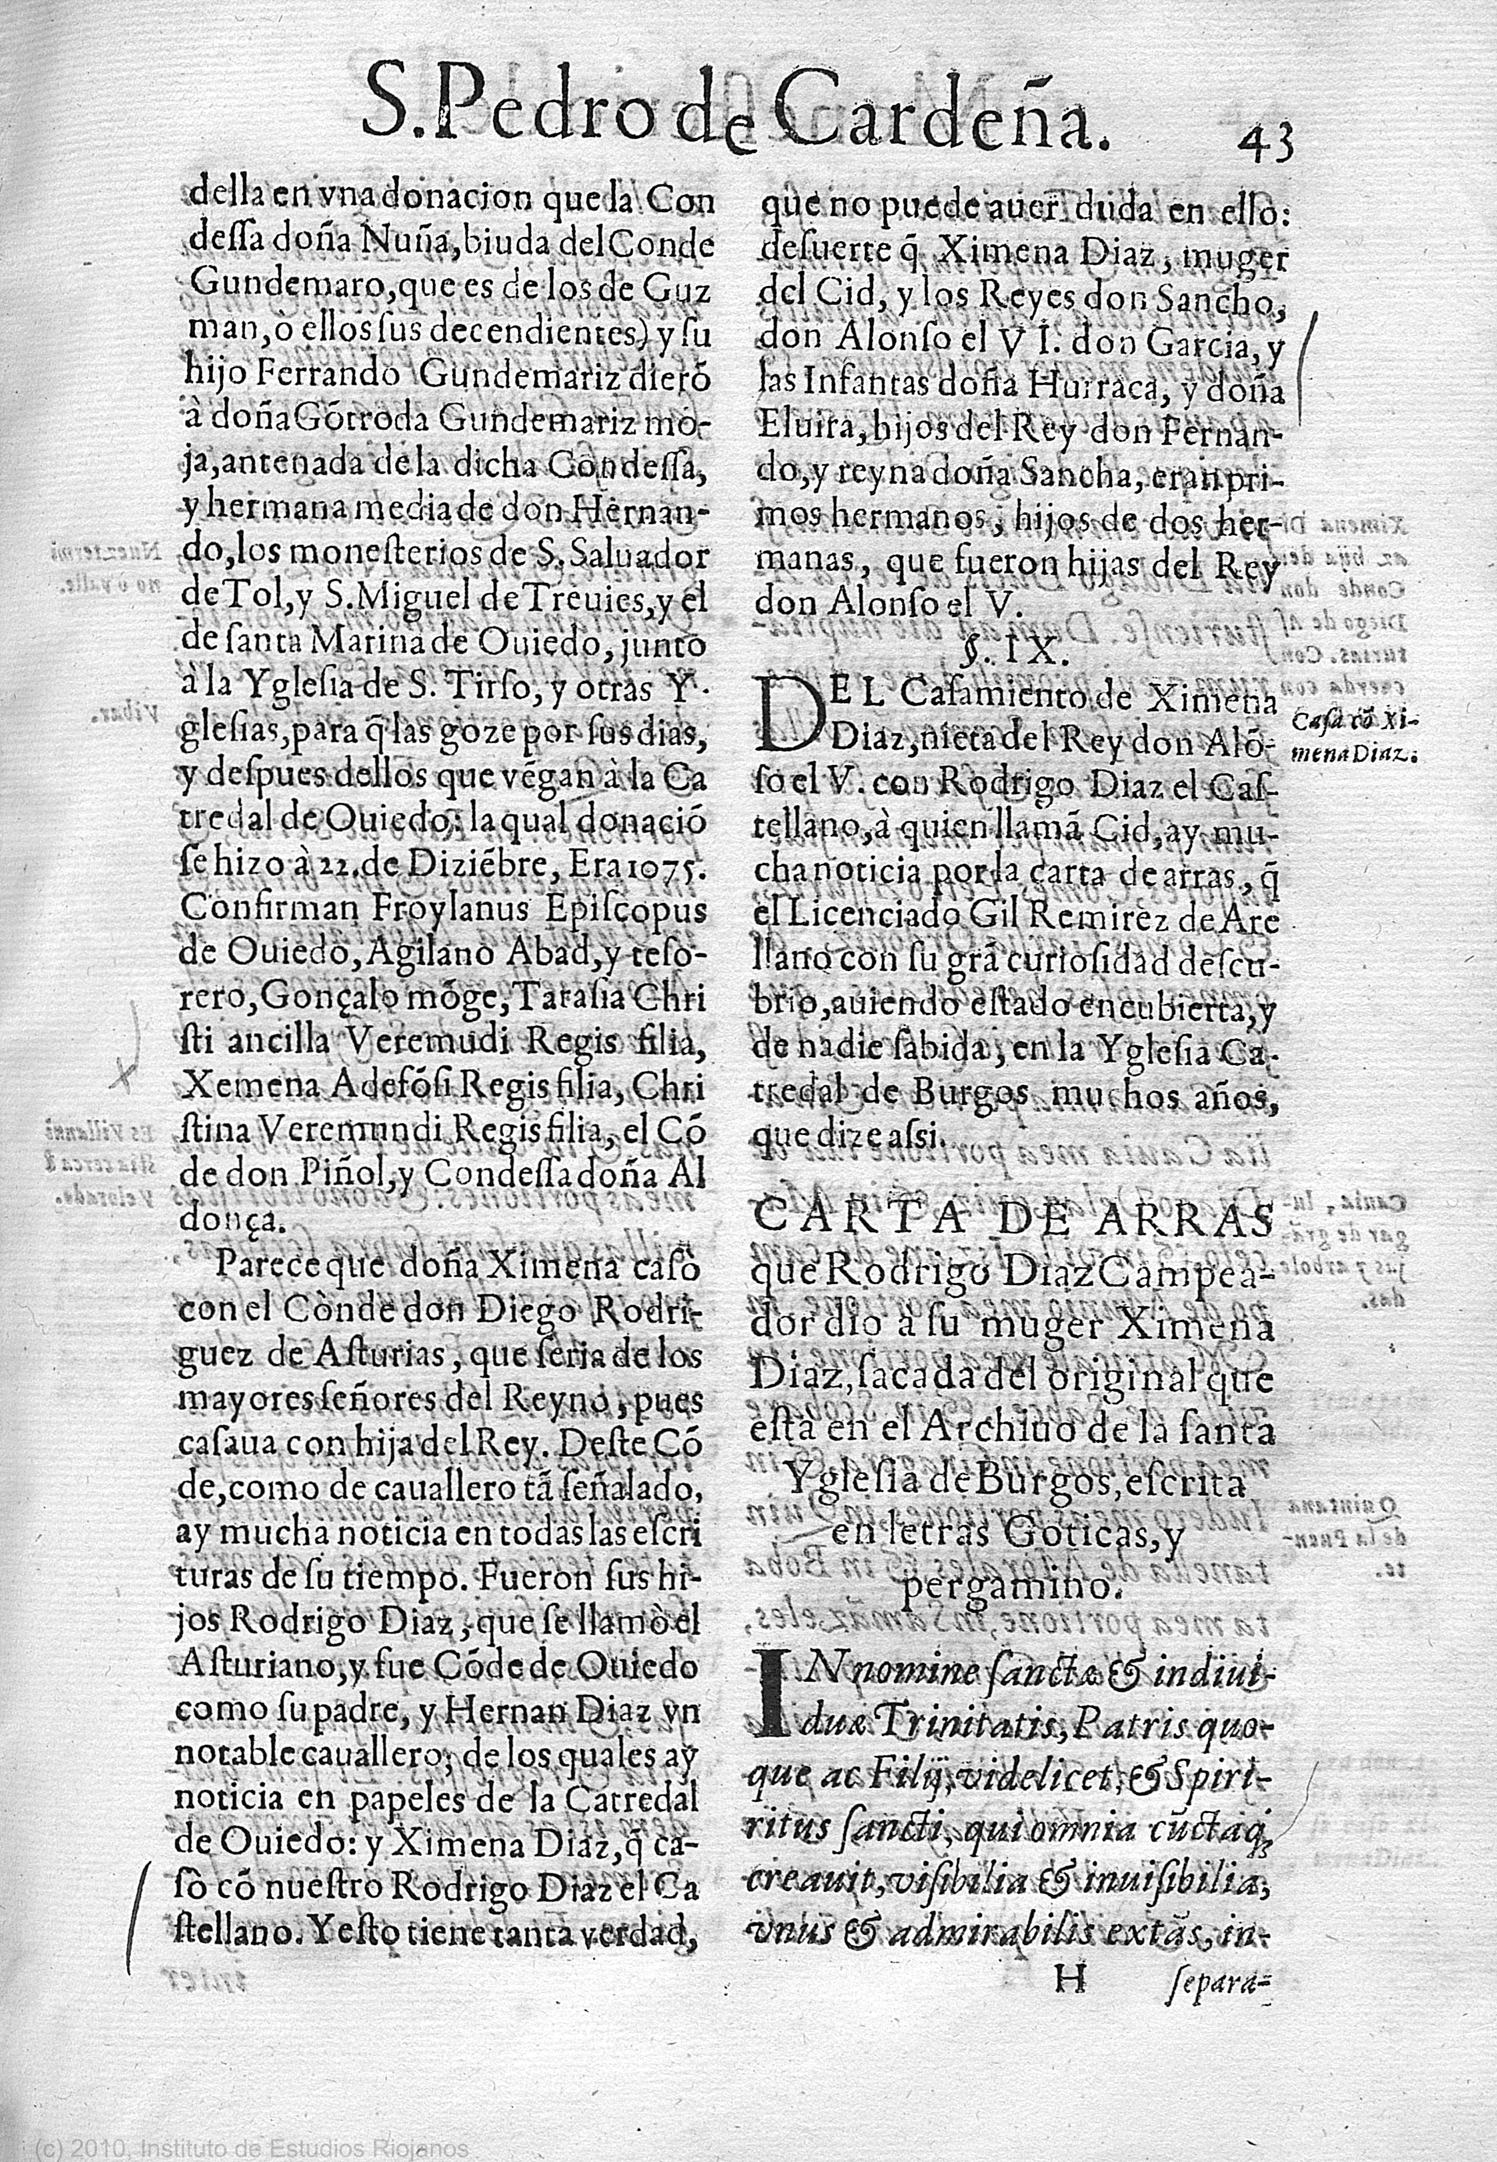 S. Pedro de Cardeña. 43
della en vna donacion que la Con
deſſa doña Nuña, biuda del Conde
Gundemaro, que es de los de Guz
man, ò ellos ſus decendientes) y ſu
hijo Ferrando Gundemariz dierõ
à doña Gõtroda Gundemariz mo-
ja, antenada de la dicha Condeſſa,
y hermana media de don Hernan-
do, los moneſterios de S. Saluador
de Tol, y S. Miguel de Treuies, y el
de ſanta Marina de Ouiedo, junto
a la Ygleſia de S. Tirſo, y otras Y-
gleſias, para q̃ las goze por ſus dias,
y deſpues dellos que vẽgan à la Ca
tredal de Ouiedo: la qual donaciõ
ſe hizo à 22. de Diziẽbre, Era 1075.
Confirman Froylanus Epiſcopus
de Ouiedo, Agilano Abad, y teſo-
rero, Gonçalo mõge, Taraſia Chri
ſti ancilla Veremudi Regis filia,
Xemena Adefõſi Regis filia, Chri
ſtina Veremundi Regis filia, el Cõ
de don Piñol, y Condeſſa doña Al
donça.
Parece que doña Ximena caſò
con el Cònde don Diego Rodri-
guez de Aſturias, que ſeria de los
mayores ſeñores del Reyno, pues
caſaua con hija del Rey. Deſte Cõ
de, como de cauallero tã ſeñalado,
ay mucha noticia en todas las eſcri
turas de ſu tiempo. Fueron ſus hi-
jos Rodrigo Diaz, que ſe llamò el
Aſturiano, y fue Cõde de Ouiedo
como ſu padre, y Hernan Diaz vn
notable cauallero, de los quales ay
noticia en papeles de la Catredal
de Ouiedo: y Ximena Diaz, q̃ ca-
ſò cõ nueſtro Rodrigo Diaz el Ca
ſtellano. Y eſto tiene tanta verdad,
que no puede auer duda en ello:
deſuerte q̃ Ximena Diaz, muger
del Cid, y los Reyes don Sancho,
don Alonſo el V I. don Garcia, y
las Infantas doña Hurraca, y doña
Eluira, hijos del Rey don Fernan-
do, y reyna doña Sancha, eran pri-
mos hermanos, hijos de dos her-
manas, que fueron hijas del Rey
don Alonſo el V.
§. I X.
DEL Caſamiento de Ximena
Diaz, nieta del Rey don Alõ-
ſo el V. con Rodrigo Diaz el Caſ-
tellano, à quien llamã Cid, ay mu-
cha noticia por la carta de arras, q̃
el Licenciado Gil Remirez de Are
llano con ſu grã curioſidad deſcu-
brio, auiendo eſtado encubierta, y
de nadie ſabida, en la Ygleſia Ca-
tredal de Burgos muchos años,
que dize aſsi.
Caſa cõ Xi-
mena Diaz.
CARTA DE ARRAS
que Rodrigo Diaz Campea-
dor dio à ſu muger Ximena
Diaz, ſacada del original que
eſta en el Archiuo de la ſanta
Ygleſia de Burgos, eſcrita
en letras Goticas, y
pergamino.
IN nomine ſanctæ & indiui-
duæ Trinitatis, Patris quo-
que ac Filij, videlicet, & Spiri-
ritus ſancti, qui omnia cũctaq;
creauit, viſibilia & inuiſibilia,
vnus & admirabilis extãs, in-
H ſepara-
(c) 2010, Instituto de Estudios Riojanos